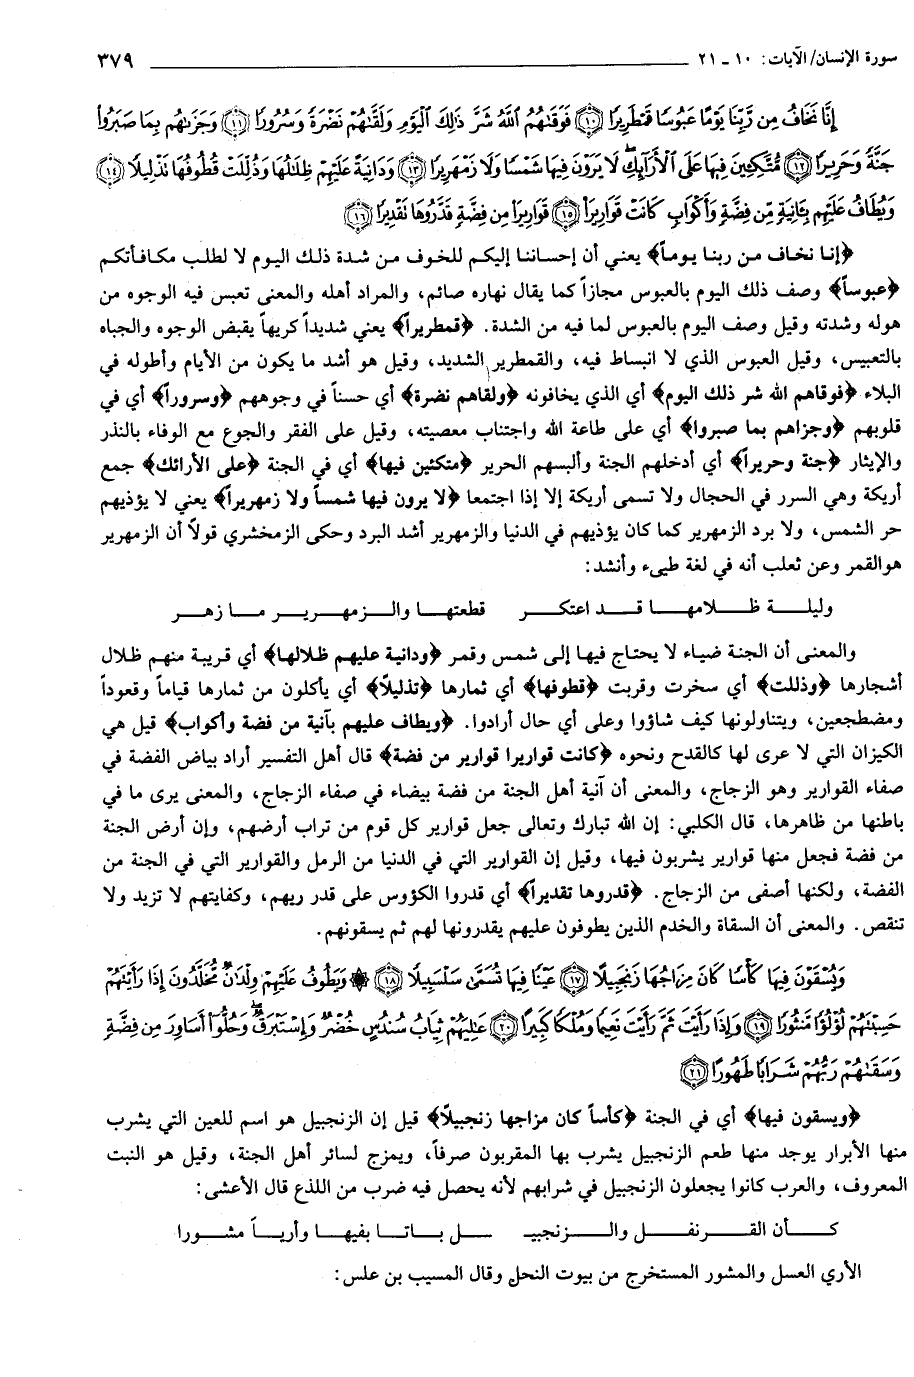 سورة الإنسان/ الآيات: ١٠ ـ ٢١ ٣٧٩
إِنَّا نَخَافُ مِن رَّبِّنَا يَوْمًا عَبُوسًا قَمْطَرِيرًا ﴿١٠﴾ فَوَقَىٰهُمُ ٱللَّهُ شَرَّ ذَٰلِكَ ٱلْيَوْمِ وَلَقَّىٰهُمْ نَضْرَةً وَسُرُورًا ﴿١١﴾ وَجَزَىٰهُم بِمَا صَبَرُوا۟
جَنَّةً وَحَرِيرًا ﴿١٢﴾ مُّتَّكِـِٔينَ فِيهَا عَلَى ٱلْأَرَآئِكِ ۖ لَا يَرَوْنَ فِيهَا شَمْسًا وَلَا زَمْهَرِيرًا ﴿١٣﴾ وَدَانِيَةً عَلَيْهِمْ ظِلَٰلُهَا وَذُلِّلَتْ قُطُوفُهَا تَذْلِيلًا ﴿١٤﴾
وَيُطَافُ عَلَيْهِم بِـَٔانِيَةٍ مِّن فِضَّةٍ وَأَكْوَابٍ كَانَتْ قَوَارِيرَا۠ ﴿١٥﴾ قَوَارِيرَا۟ مِن فِضَّةٍ قَدَّرُوهَا تَقْدِيرًا ﴿١٦﴾
﴿إنا نخاف من ربنا يوماً﴾ يعني أن إحساننا إليكم للخوف من شدة ذلك اليوم لا لطلب مكافأتكم
﴿عبوساً﴾ وصف ذلك اليوم بالعبوس مجازاً كما يقال نهاره صائم، والمراد أهله والمعنى تعبس فيه الوجوه من
هوله وشدته وقيل وصف اليوم بالعبوس لما فيه من الشدة. ﴿قمطريراً﴾ يعني شديداً كريهاً يقبض الوجوه والجباه
بالتعبيس، وقيل العبوس الذي لا انبساط فيه، والقمطرير الشديد، وقيل هو أشد ما يكون من الأيام وأطوله في
البلاء ﴿فوقاهم الله شر ذلك اليوم﴾ أي الذي يخافونه ﴿ولقاهم نضرة﴾ أي حسناً في وجوههم ﴿وسروراً﴾ أي في
قلوبهم ﴿وجزاهم بما صبروا﴾ أي على طاعة الله واجتناب معصيته، وقيل على الفقر والجوع مع الوفاء بالنذر
والإيثار ﴿جنة وحريراً﴾ أي أدخلهم الجنة وألبسهم الحرير ﴿متكئين فيها﴾ أي في الجنة ﴿على الأرائك﴾ جمع
أريكة وهي السرر في الحجال ولا تسمى أريكة إلا إذا اجتمعا ﴿لا يرون فيها شمساً ولا زمهريراً﴾ يعني لا يؤذيهم
حر الشمس، ولا برد الزمهرير كما كان يؤذيهم في الدنيا والزمهرير أشد البرد وحكى الزمخشري قولاً أن الزمهرير
هوالقمر وعن ثعلب أنه في لغة طيىء وأنشد:
وليلة ظلامها قد اعتكر قطعتها والزمهرير ما زهر
والمعنى أن الجنة ضياء لا يحتاج فيها إلى شمس وقمر ﴿ودانية عليهم ظلالها﴾ أي قريبة منهم ظلال
أشجارها ﴿وذللت﴾ أي سخرت وقربت ﴿قطوفها﴾ أي ثمارها ﴿تذليلاً﴾ أي يأكلون من ثمارها قياماً وقعوداً
ومضطجعين، ويتناولونها كيف شاؤوا وعلى أي حال أرادوا. ﴿ويطاف عليهم بآنية من فضة وأكواب﴾ قيل هي
الكيزان التي لا عرى لها كالقدح ونحوه ﴿كانت قواريرا قوارير من فضة﴾ قال أهل التفسير أراد بياض الفضة في
صفاء القوارير وهو الزجاج، والمعنى أن آنية أهل الجنة من فضة بيضاء في صفاء الزجاج، والمعنى يرى ما في
باطنها من ظاهرها، قال الكلبي: إن الله تبارك وتعالى جعل قوارير كل قوم من تراب أرضهم، وإن أرض الجنة
من فضة فجعل منها قوارير يشربون فيها، وقيل إن القوارير التي في الدنيا من الرمل والقوارير التي في الجنة من
الفضة، ولكنها أصفى من الزجاج. ﴿قدروها تقديراً﴾ أي قدروا الكؤوس على قدر ريهم، وكفايتهم لا تزيد ولا
تنقص. والمعنى أن السقاة والخدم الذين يطوفون عليهم يقدرونها لهم ثم يسقونهم.
وَيُسْقَوْنَ فِيهَا كَأْسًا كَانَ مِزَاجُهَا زَنجَبِيلًا ﴿١٧﴾ عَيْنًا فِيهَا تُسَمَّىٰ سَلْسَبِيلًا ﴿١٨﴾ ۞ وَيَطُوفُ عَلَيْهِمْ وِلْدَٰنٌ مُّخَلَّدُونَ إِذَا رَأَيْتَهُمْ
حَسِبْتَهُمْ لُؤْلُؤًا مَّنثُورًا ﴿١٩﴾ وَإِذَا رَأَيْتَ ثَمَّ رَأَيْتَ نَعِيمًا وَمُلْكًا كَبِيرًا ﴿٢٠﴾ عَٰلِيَهُمْ ثِيَابُ سُندُسٍ خُضْرٌ وَإِسْتَبْرَقٌ ۖ وَحُلُّوٓا۟ أَسَاوِرَ مِن فِضَّةٍ
وَسَقَىٰهُمْ رَبُّهُمْ شَرَابًا طَهُورًا ﴿٢١﴾
﴿ويسقون فيها﴾ أي في الجنة ﴿كأساً كان مزاجها زنجبيلاً﴾ قيل إن الزنجبيل هو اسم للعين التي يشرب
منها الأبرار يوجد منها طعم الزنجبيل يشرب بها المقربون صرفاً، ويمزج لسائر أهل الجنة، وقيل هو النبت
المعروف، والعرب كانوا يجعلون الزنجبيل في شرابهم لأنه يحصل فيه ضرب من اللذع قال الأعشى:
كأن القرنفل والزنجبيـ ـل باتا بفيها وأرياً مشورا
الأري العسل والمشور المستخرج من بيوت النحل وقال المسيب بن علس: